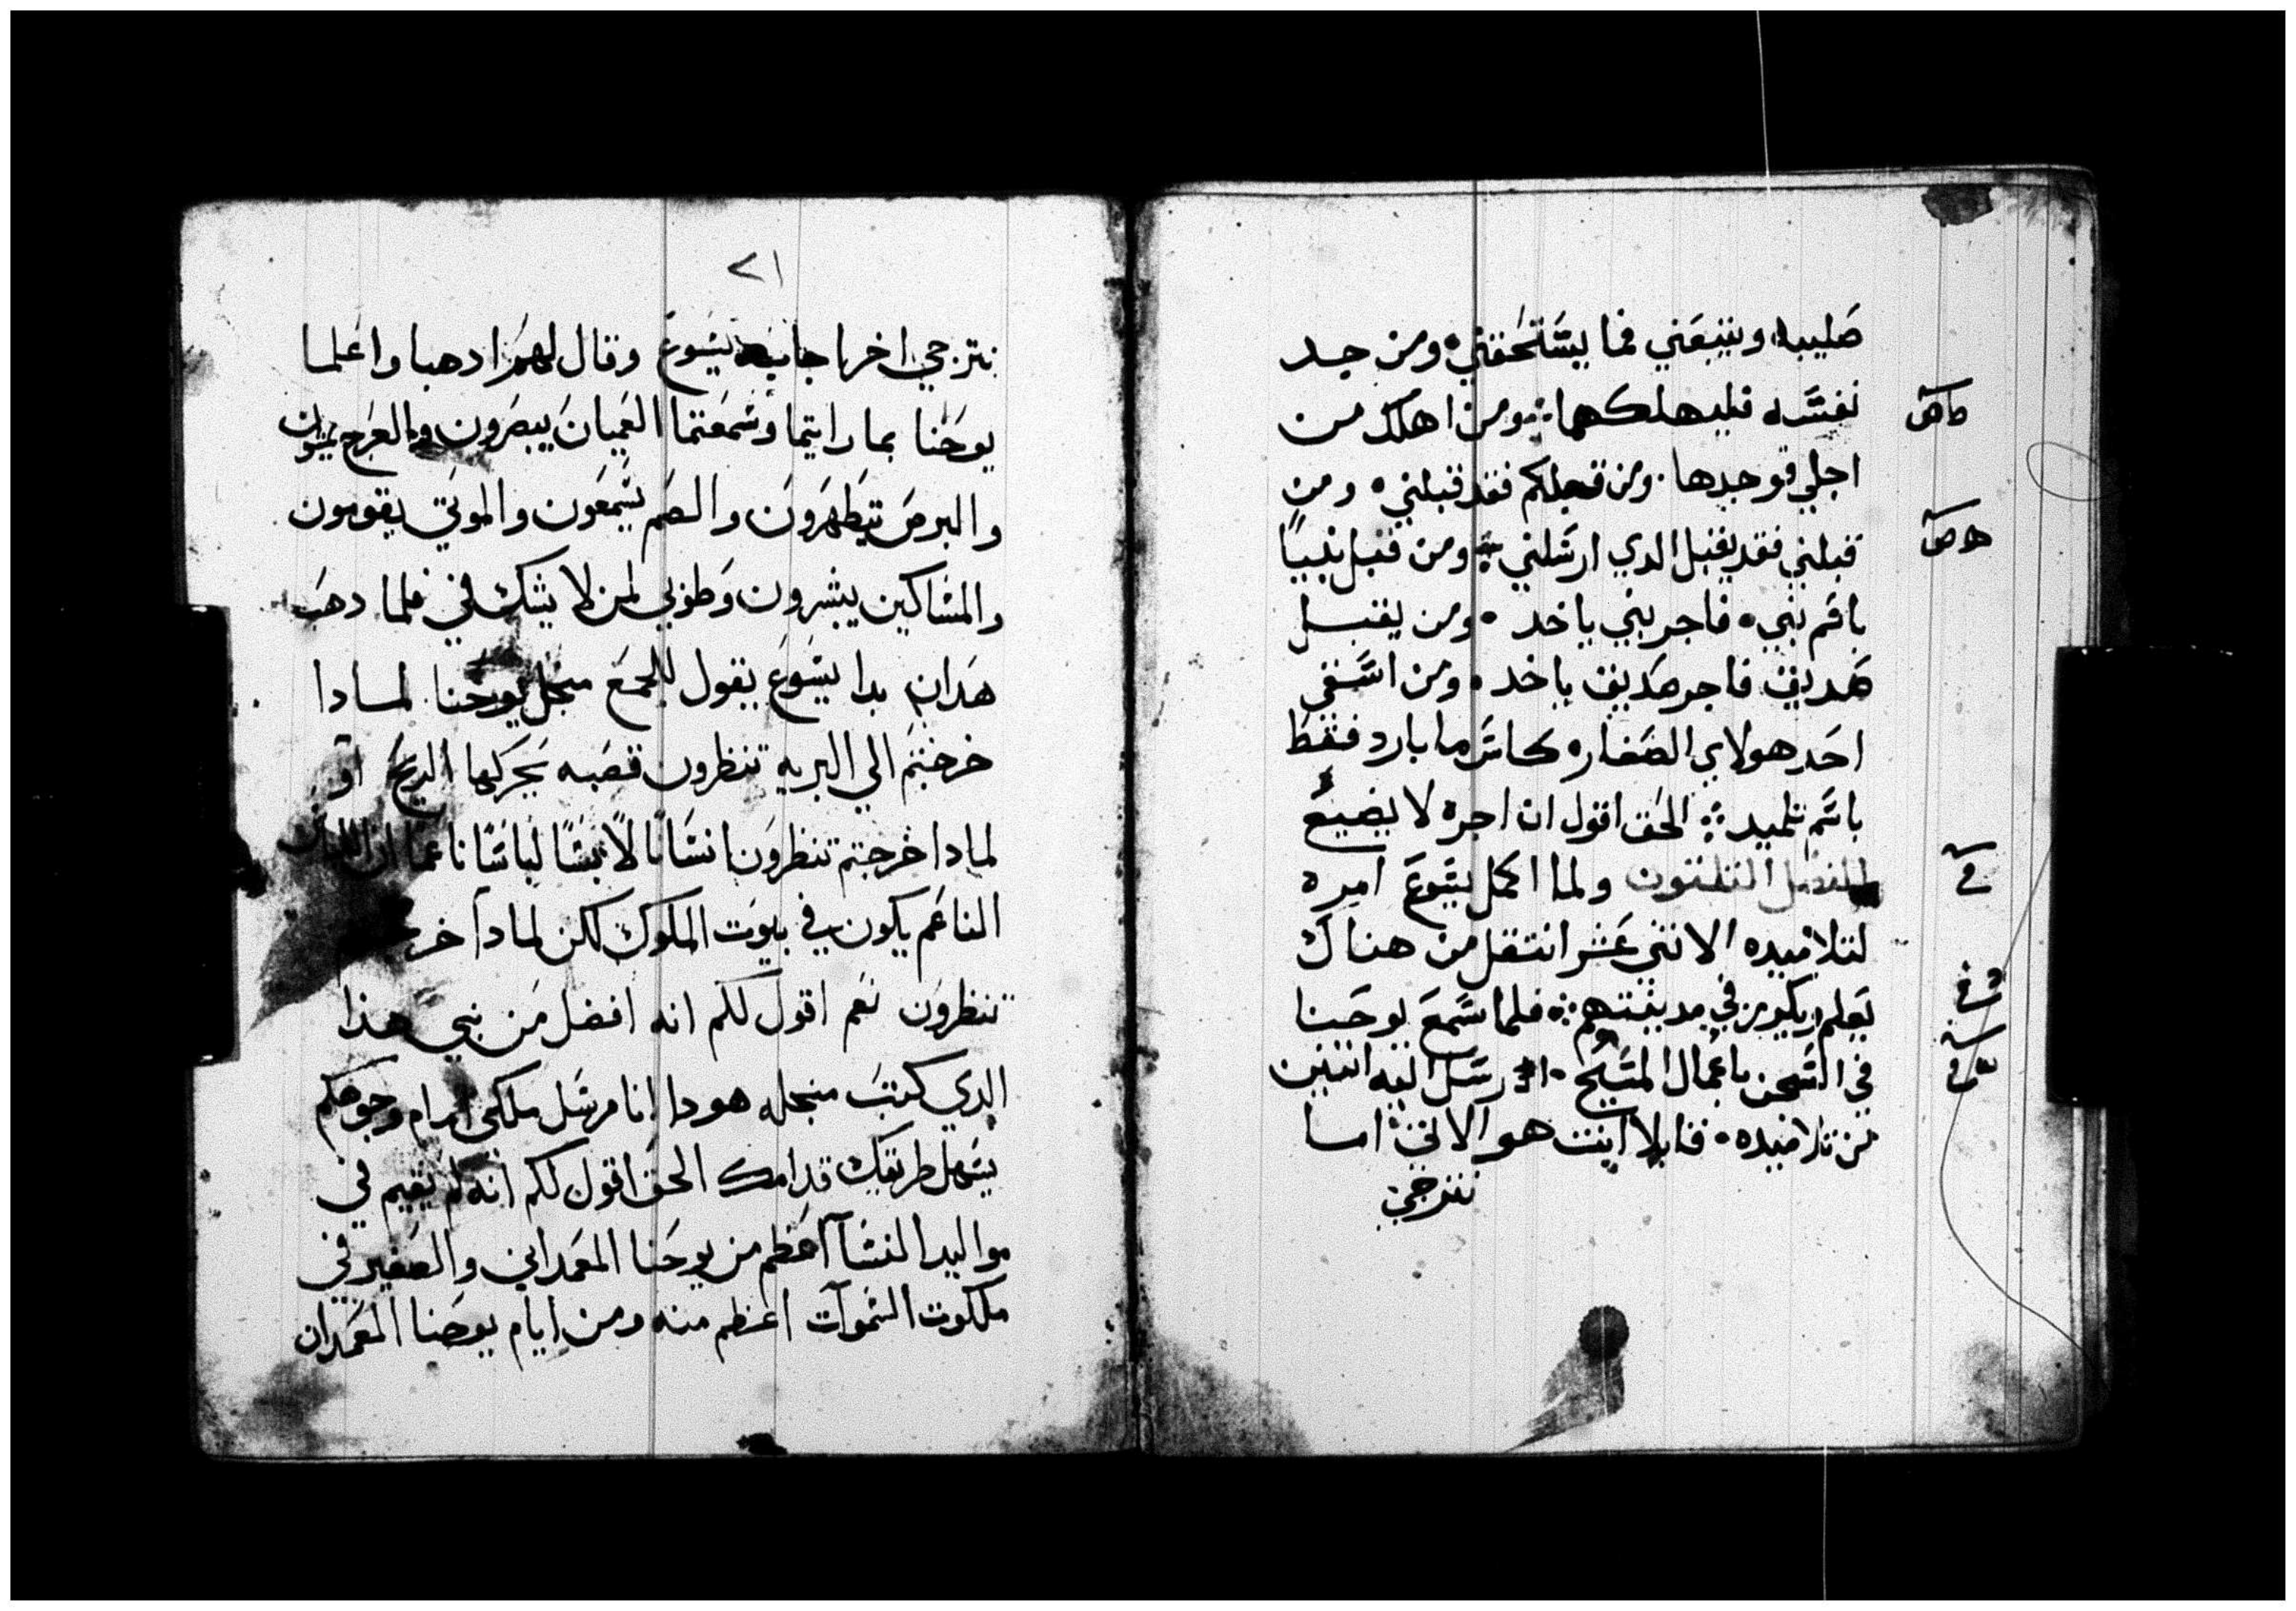 صليبه ويتبعني فما يستحقني ومن يجد
نفسه فليهلكها ومن اهلك من
اجلي فوجدها ومن قبلكم فقد قبلني ومن
قبلني فقد يقبل الدي ارسلني ومن قبل نبيًا
باسم نبي فاجر نبي ياخد ومن يقبل
صديق فاجر صديق ياخد ومن اسقى
احد هولاي الصغاره كاس ما بارد فقط
باسم تلميد الحق اقول ان اجره لا يضيع
الفصل الثلثون ولما اكمل يسوع امره
لتلاميده الاثني عشر انتقل من هناك
يعلم ويكرز في مدينتهم فلما سمع يوحنا
في السجن باعمال المسيح ارسل اليه اثنين
من تلاميده قايلا اينت هو الاتى اما
نترجي
٢١
نترجي اخر اجابهم يسوع وقال لهم ادهبا واعلما
يوحنا بما رايتما وسمعتما العميان يبصرون والعرج يمشون
والبرص يتطهرون والصم يسمعون والموتي يقومون
والمساكين يبشرون وطوبي لمن لا يشك في فلما دهب
هدان بدا يسوع يقول للجمع منجل يوحنا لمادا
خرجتم الي البرية تنظرون قصبه يحركها الريح او
لمادا خرجتم تنظرون انسانا لابسًا لباسًا ناعمًا ان اللباس
الناعم يكون في بيوت الملوك لكن لمادا خرجتم
تنظرون نعم اقول لكم انه افضل من نبي هدا
الدي كتب منجله هودا انا مرسل ملاكي امام وجوهكم
يسهل طريقك قدامك الحق اقول لكم انه لم يقيم في
مواليد النسا اعظم من يوحنا المعمداني والصغير في
ملكوت السموات اعظم منه ومن ايام يوحنا المعمدان